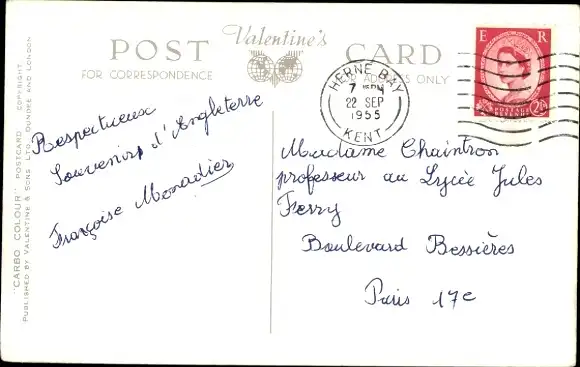 POST Valentine's CARD
FOR CORRESPONDENCE ADDRESS ONLY
E R
POSTAGE
REVENUE
2½D
HERNE BAY
7
22 SEP
1955
KENT
Respectueux
Souvenirs d'Angleterre
Françoise Monadier
Madame Chaintron
professeur au Lycée Jules
Ferry
Boulevard Bessières
Paris 17e
"CARBO COLOUR" POSTCARD COPYRIGHT
PUBLISHED BY VALENTINE & SONS LTD. DUNDEE AND LONDON